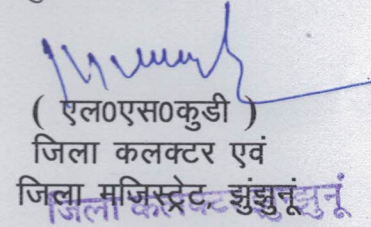 ( एल0एस0कुडी )
जिला कलक्टर एवं
जिला मजिस्ट्रेट, झुंझुनूं
जिला कलक्टर झुंझुनूं